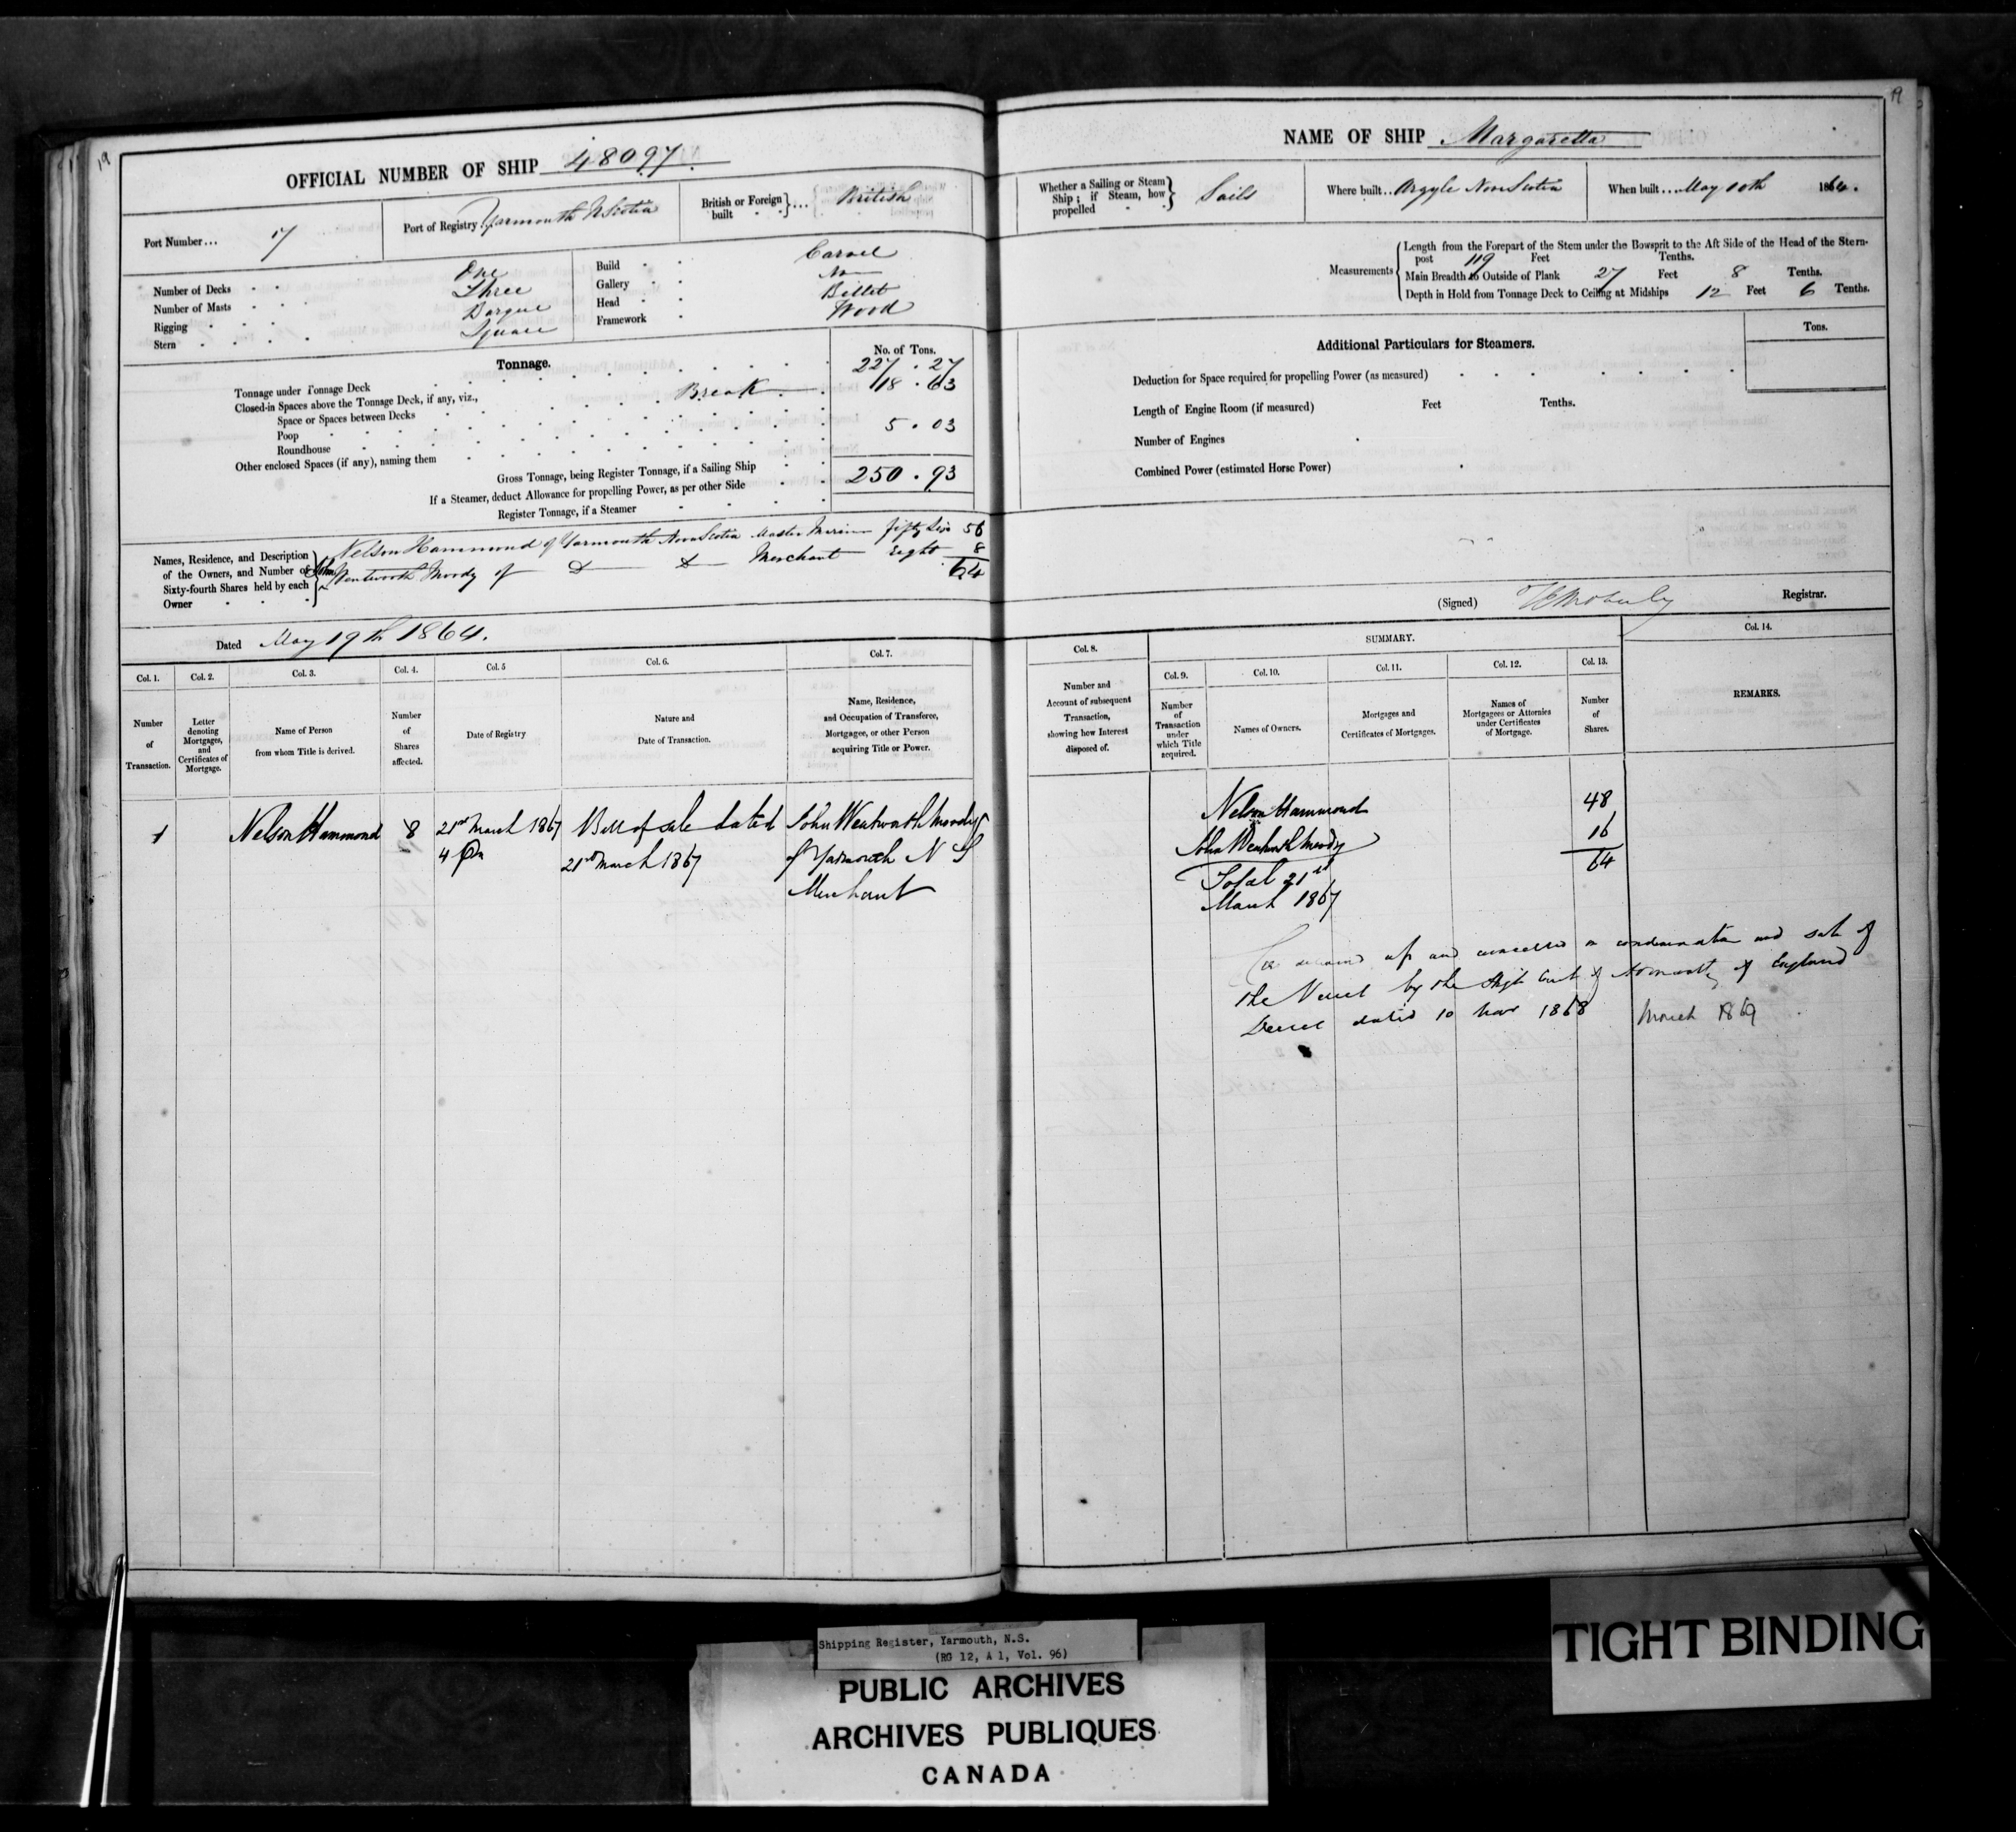 19
OFFICIAL NUMBER OF SHIP 48097.
Port Number... 17
Port of Registry Yarmouth N Scotia
British or Foreign built }... British
Number of Decks One
Number of Masts Three
Rigging Barque
Stern Square
Build Carvel
Gallery No
Head Billet
Framework Wood
Tonnage.
No. of Tons.
Tonnage under Tonnage Deck 227 . 27
Closed-in Spaces above the Tonnage Deck, if any, viz., Break 18 . 63
Space or Spaces between Decks
Poop 5 . 03
Roundhouse
Other enclosed Spaces (if any), naming them
Gross Tonnage, being Register Tonnage, if a Sailing Ship 250 . 93
If a Steamer, deduct Allowance for propelling Power, as per other Side
Register Tonnage, if a Steamer
Names, Residence, and Description of the Owners, and Number of Sixty-fourth Shares held by each Owner
Nelson Hammond of Yarmouth Nova Scotia Master Mariner fifty Six 56
John Wentworth Moody of Do Do Merchant eight 8
64
Dated May 19th 1864.
Col. 1. Col. 2. Col. 3. Col. 4. Col. 5 Col. 6. Col. 7.
Number of Transaction.
Letter denoting Mortgages, and Certificates of Mortgage.
Name of Person from whom Title is derived.
Number of Shares affected.
Date of Registry
Nature and Date of Transaction.
Name, Residence, and Occupation of Transferee, Mortgagee, or other Person acquiring Title or Power.
1 Nelson Hammond 8 21st March 1867 Bill of sale dated John Wentworth Moody
4 Pm 21st March 1867 of Yarmouth N S
Merchant
19
NAME OF SHIP Margaretta
Whether a Sailing or Steam Ship; if Steam, how propelled } Sails
Where built.. Argyle Nova Scotia
When built... May 10th 1864.
Measurements
Length from the Forepart of the Stem under the Bowsprit to the Aft Side of the Head of the Stern-
post 119 Feet Tenths.
Main Breadth to Outside of Plank 27 Feet 8 Tenths.
Depth in Hold from Tonnage Deck to Ceiling at Midships 12 Feet 6 Tenths.
Additional Particulars for Steamers.
Tons.
Deduction for Space required for propelling Power (as measured)
Length of Engine Room (if measured) Feet Tenths.
Number of Engines
Combined Power (estimated Horse Power)
(Signed) Registrar.
SUMMARY.
Col. 8. Col. 9. Col. 10. Col. 11. Col. 12. Col. 13. Col. 14.
Number and Account of subsequent Transaction, showing how Interest disposed of.
Number of Transaction under which Title acquired.
Names of Owners.
Mortgages and Certificates of Mortgages.
Names of Mortgagees or Attornies under Certificates of Mortgage.
Number of Shares.
REMARKS.
Nelson Hammond 48
John Wentworth Moody 16
Total 21st 64
March 1867
up and cancelled on condemnation and sale of
the Vessel by the High Court of Admiralty of England
Decree dated 10 Nov 1868 March 1869
TIGHT BINDING
Shipping Register, Yarmouth, N.S.
(RG 12, A 1, Vol. 96)
PUBLIC ARCHIVES
ARCHIVES PUBLIQUES
CANADA